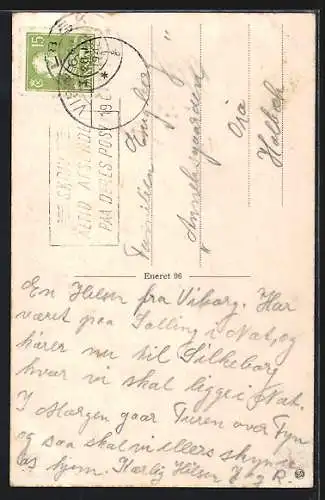 15
VIBORG
SKRIV
ALTID AFSENDER
PAA DERES POST
Familien Engberg
"Annebergsgaarden"
Holbæk
Eneret 96
En Hilsen fra Viborg. Har
været paa Salling i Nat, og
kører nu til Silkeborg
hvor vi skal ligge i Nat.
I Morgen gaar Turen over Fyn
og saa skal vi ellers skynde
os hjem. Kærlig Hilsen J og R.